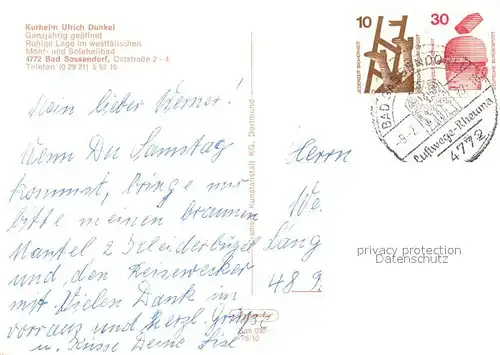 Kurheim Ulrich Dunkel
Ganzjährig geöffnet
Ruhige Lage im westfälischen
Moor- und Soleheilbad
4772 Bad Sassendorf, Oststraße 2 - 4
Telefon (0 29 21) 5 52 15
10
30
JEDERZEIT SICHERHEIT
DEUTSCHE BUNDESPOST
BAD SASSENDORF
Luftwege-Rheuma
4772
Mein lieber Werner!
Wenn Du Samstag
kommst, bringe mir
bitte meinen braunen
Mantel 2 Kleiderbügel
und den Reisewecker
mit. Vielen Dank im
vorraus und Herzl. Grüße
u. Küsse Deine
Herrn
We.
Lang
48
Kunstanstalt KG, Dortmund
75/10
privacy protection
Datenschutz